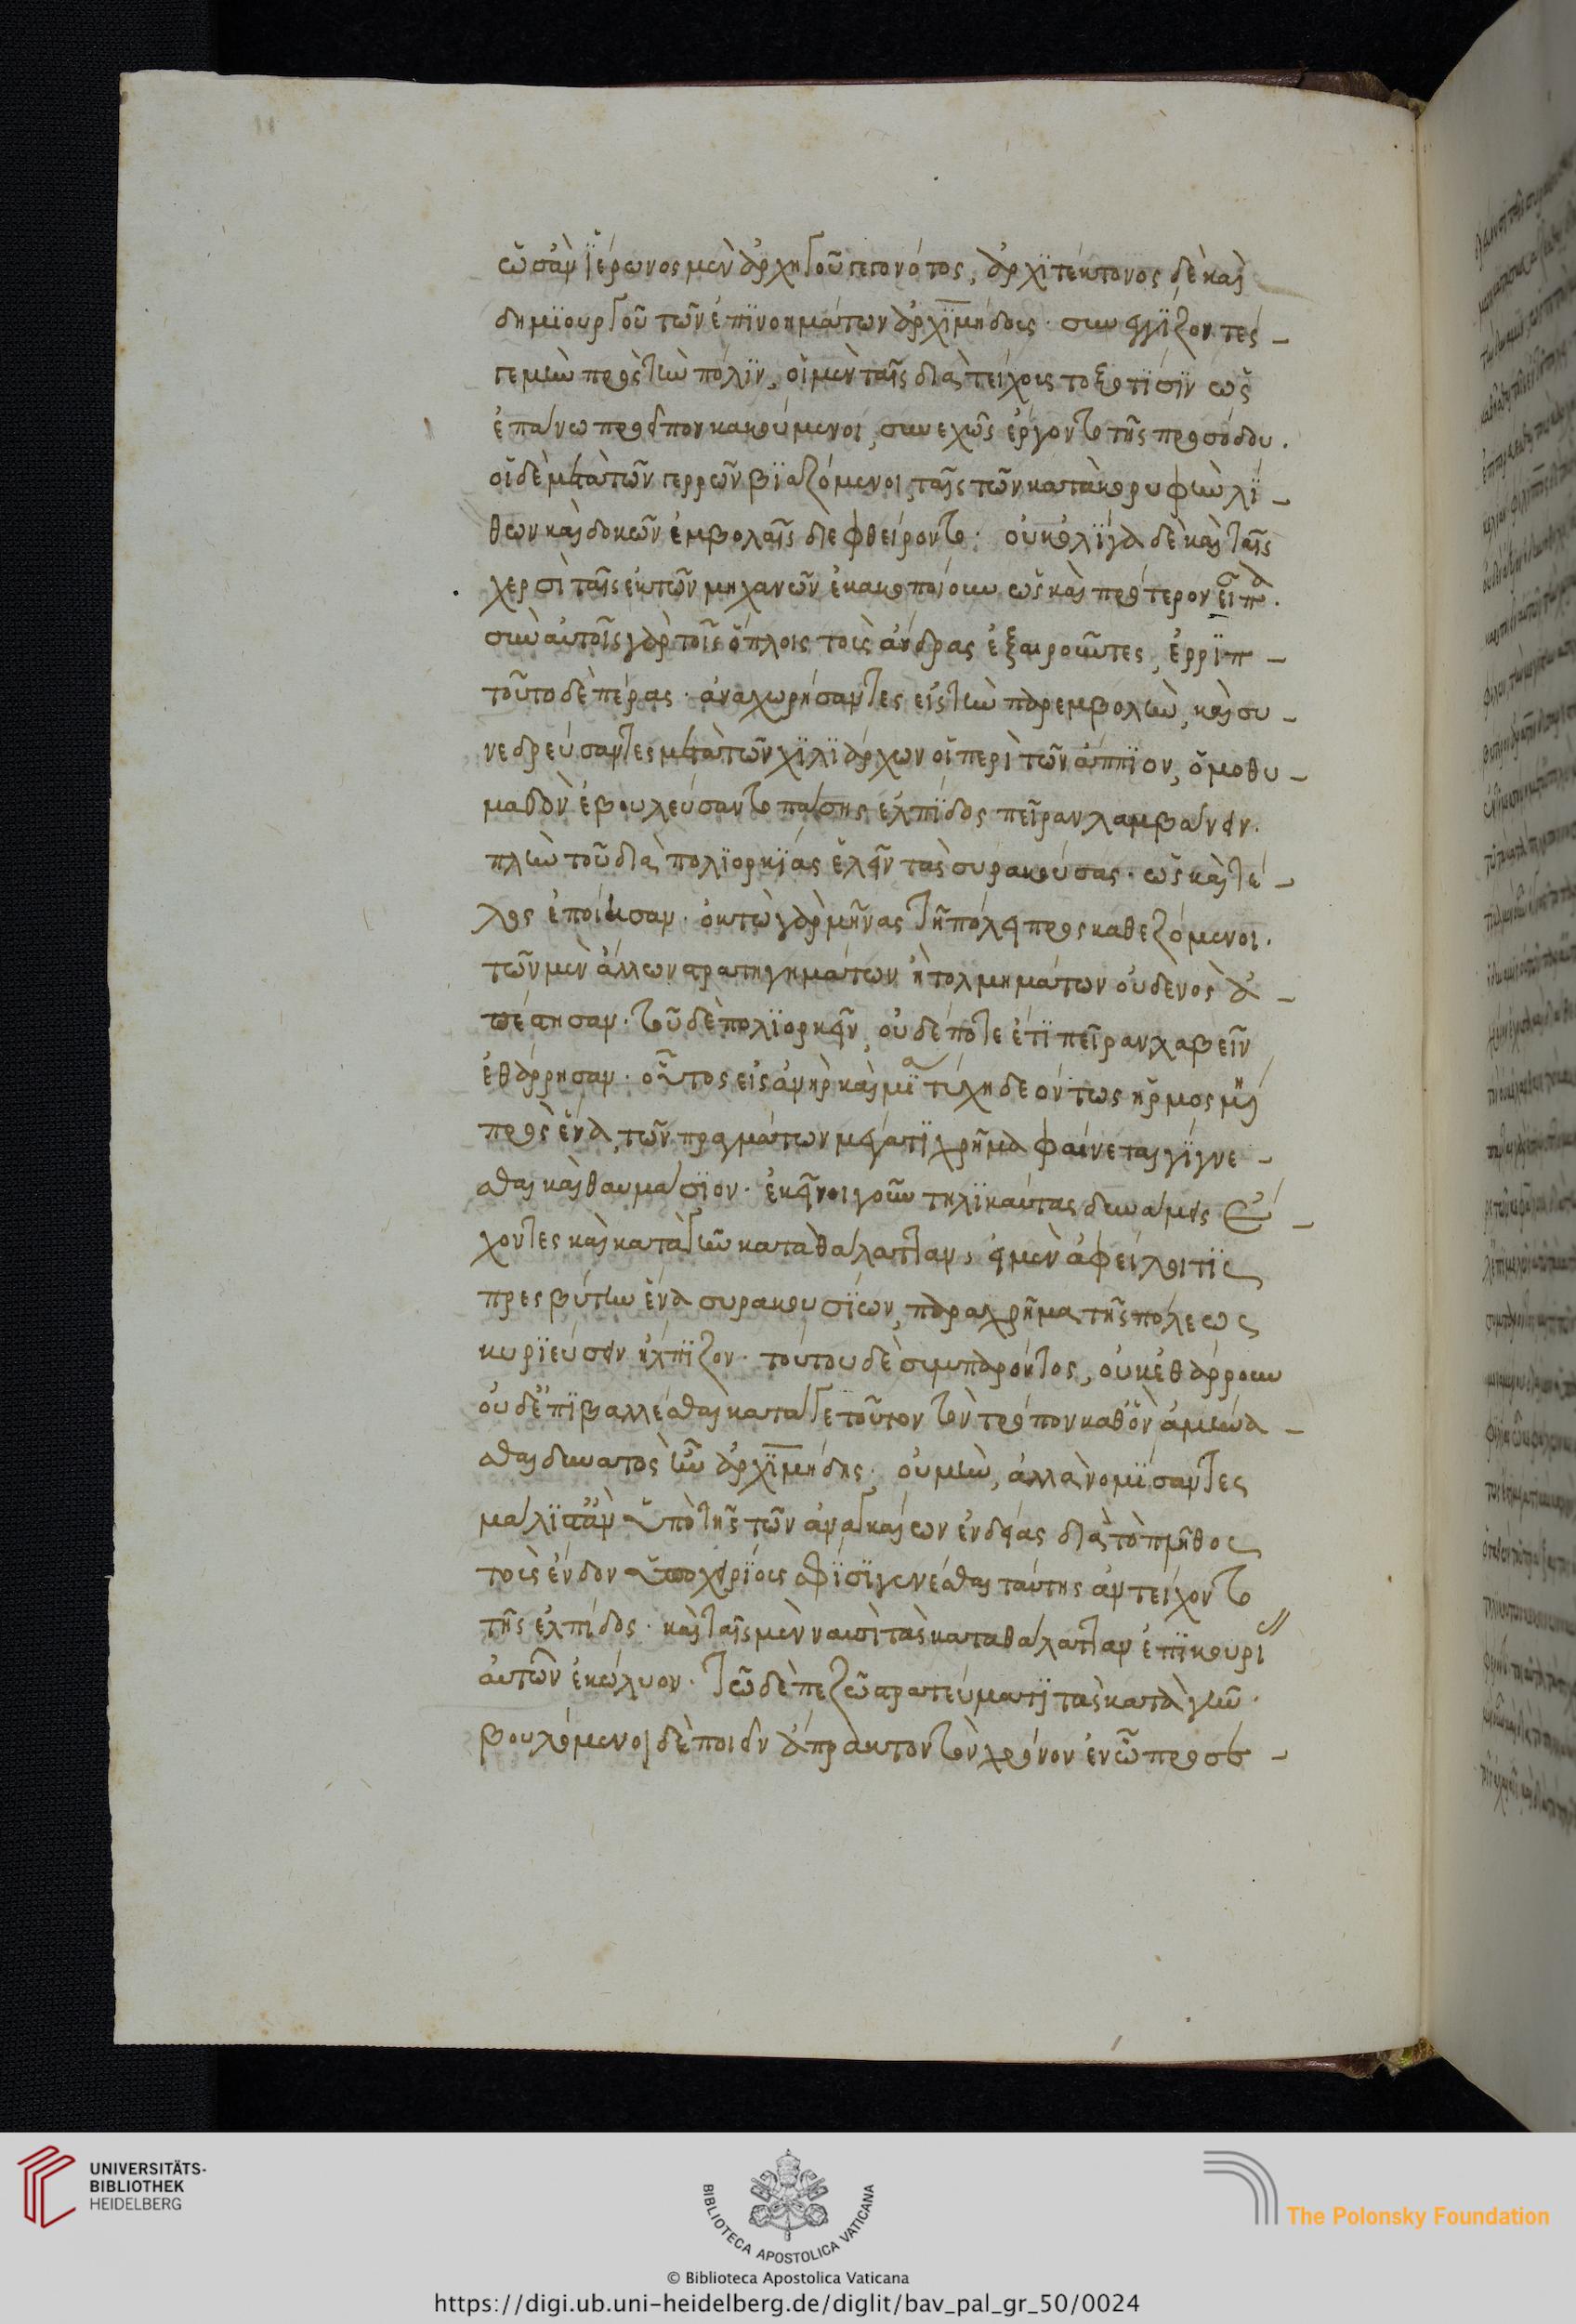 ὡσὰν ἱέρωνος μὲν ἀρχηγοῦ γεγονότος, ἀρχιτέκτονος δὲ καὶ
δημιουργοῦ τῶν ἐπινοημάτων ἀρχιμήδους· συνεγγίζοντές
γε μὴν πρὸς τὴν πόλιν, οἱ μὲν ταῖς διὰ τείχους τοξότισιν ὡς
ἐπάνω πρόειπον κακούμενοι, συνεχῶς εἴργοντο τῆς προσόδου.
οἱ δὲ μετὰ τῶν γερρῶν βιαζόμενοι ταῖς τῶν κατὰ κορυφὴν λί-
θων καὶ δοκῶν ἐμβολαῖς διεφθείροντο· οὐκ ὀλίγα δὲ καὶ ταῖς
χερσὶ ταῖς ἐκ τῶν μηχανῶν ἐκακοποίουν ὡς καὶ πρότερον εἶπα.
σὺν αὐτοῖς γὰρ τοῖς ὅπλοις τοὺς ἄνδρας ἐξαιροῦντες, ἐρρίπ-
τουν τὸ δὲ πέρας· ἀναχωρήσαντες εἰς τὴν παρεμβολὴν, καὶ συ-
νεδρεύσαντες μετὰ τῶν χιλιάρχων οἱ περὶ τῶν ἄππιον, ὁμοθυ-
μαδὸν ἐβουλεύσαντο πάσης ἐλπίδος πεῖραν λαμβάνειν.
πλὴν τοῦ διὰ πολιορκίας ἑλεῖν τὰς συρακούσας· ὡς καὶ τέ-
λος ἐποίησαν· ὀκτὼ γὰρ μῆνας τῇ πόλει προσκαθεζόμενοι.
τῶν μὲν ἄλλων στρατηγημάτων ἢ τολμημάτων οὐδενὸς ἀ-
πέστησαν· τοῦ δὲ πολιορκεῖν, οὐδέποτε ἔτι πεῖραν λαβεῖν
ἐθάρρησαν· οὕτως εἷς ἀνὴρ καὶ μία τύχη δεόντως ἡρμοσμένη
πρὸς ἕνα τῶν πραγμάτων μέγα τι χρῆμα φαίνεται γίγνε-
σθαι καὶ θαυμάσιον· ἐκεῖνοι γοῦν τηλικαύτας δυνάμεις ἔ-
χοντες καὶ κατὰ γῆν κατὰ θάλατταν, εἰ μὲν ἀφέιλοι τις
πρεσβύτην ἕνα συρακουσίων, παραχρῆμα τῆς πόλεως
κυριεύσειν ἤλπιζον· τούτου δὲ συμπαρόντος, οὐκ ἐθάρρουν
οὐδ' ἐπιβαλλέσθαι κατά γε τοῦτον τὸν τρόπον καθ' ὃν ἀμύνα-
σθαι δυνατὸς ἦν ἀρχιμήδης· οὐ μὴν, ἀλλὰ νομίσαντες
μάλιστ' ἂν ὑπὸ τῆς τῶν ἀναγκαίων ἐνδείας διὰ τὸ πλῆθος
τοὺς ἔνδον ὑποχειρίους σφίσι γενέσθαι ταύτης ἀντείχοντο
τῆς ἐλπίδος· καὶ ταῖς μὲν ναυσὶ τὰς κατὰ θάλατταν ἐπικουρίας
αὐτῶν ἐκώλυον· τῷ δὲ πεζῷ στρατεύματι τὰς κατὰ γῆν.
βουλόμενοι δὲ ποιεῖν ἄπρακτον τὸν χρόνον ἐν ᾧ προσε-
UNIVERSITÄTS-
BIBLIOTHEK
HEIDELBERG
BIBLIOTECA APOSTOLICA VATICANA
The Polonsky Foundation
© Biblioteca Apostolica Vaticana
https://digi.ub.uni-heidelberg.de/diglit/bav_pal_gr_50/0024